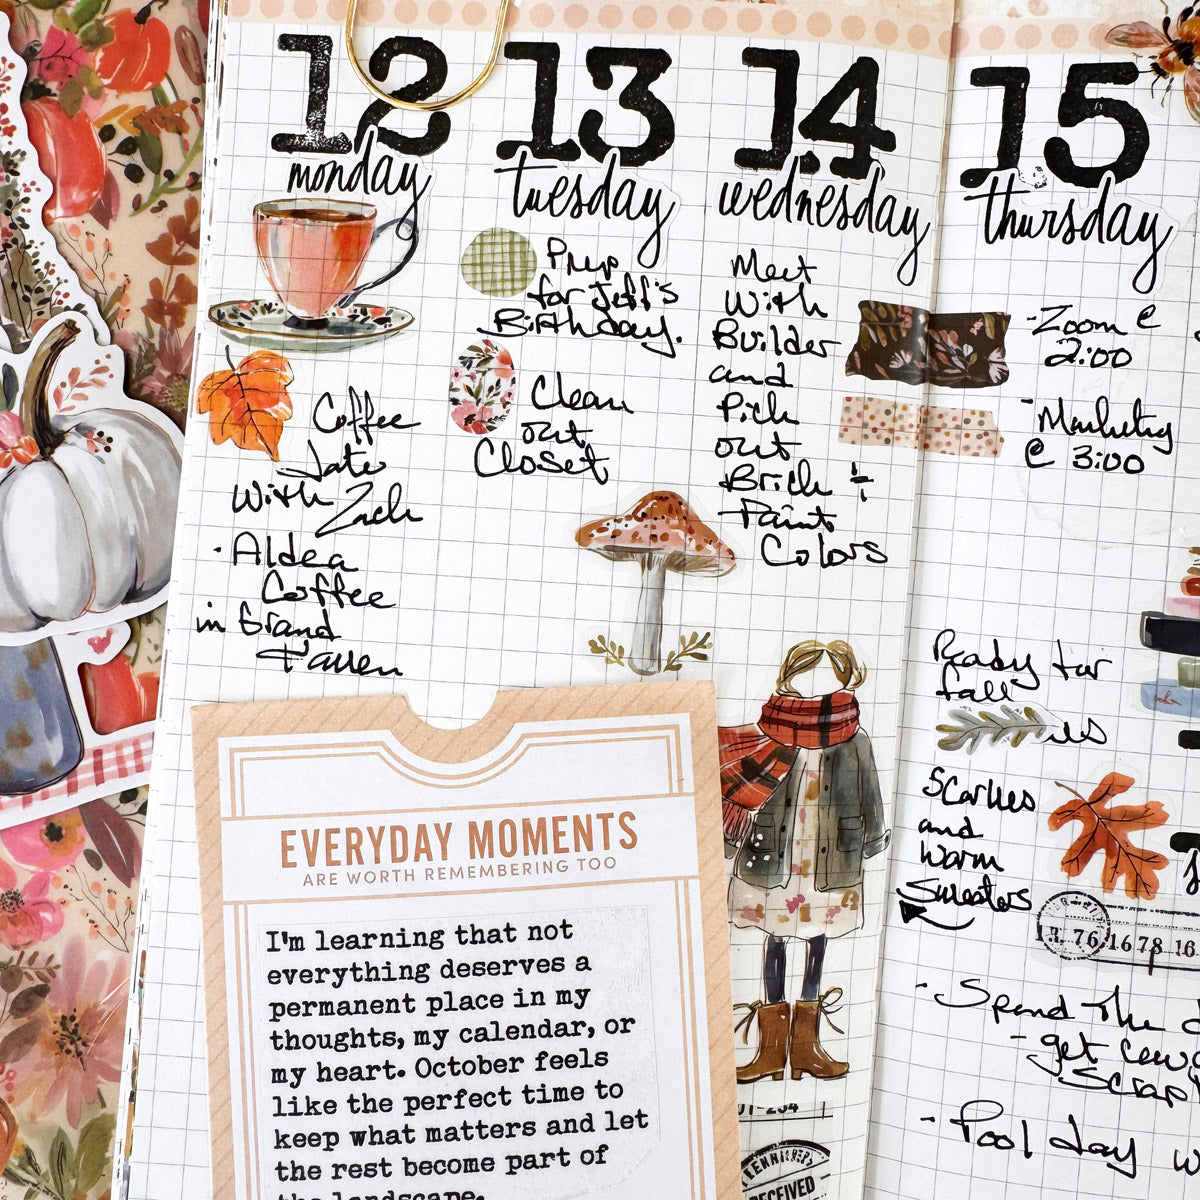 12
monday
Coffee
Date
With Zach
· Aldea
Coffee
in Grand
Haven
13
tuesday
Prep
for Jeff's
Birthday.
Clean
out
Closet
14
wednesday
Meet
With
Builder
and
Pick
out
Brick +
Paint
Colors
15
thursday
- Zoom @
2:00
- Marketing
@ 3:00
Ready for
fall
Scarves
and
Warm
Sweaters
76 1678 16
- Spend The
- get
Scrap
- Pool day
EVERYDAY MOMENTS
ARE WORTH REMEMBERING TOO
I'm learning that not
everything deserves a
permanent place in my
thoughts, my calendar, or
my heart. October feels
like the perfect time to
keep what matters and let
the rest become part of
the landscape.
RECEIVED